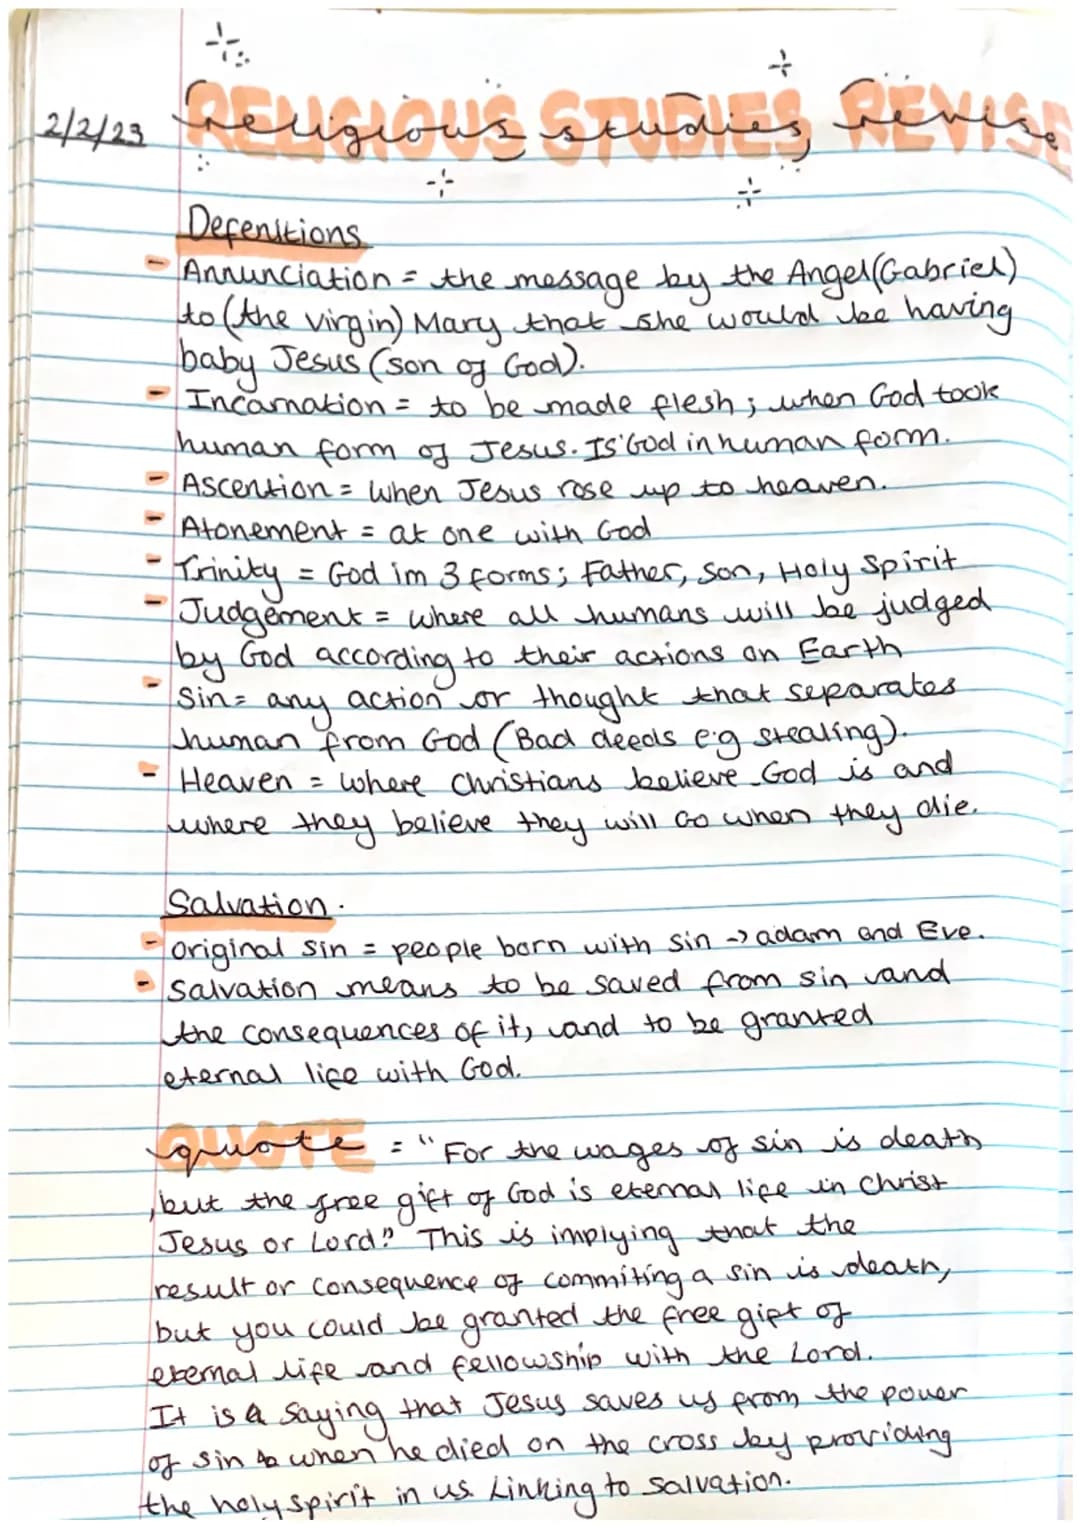 2/2/23 Religious studies, Revise
RELIGIOUS STUDIES REVISE
Defenitions
- Annunciation = the message by the Angel (Gabriel)
to (the virgin) Mary that she would be having
baby Jesus (son of God).
- Incarnation = to be made flesh; when God took
human form of Jesus. IS God in human form.
- Ascention = when Jesus rose up to heaven.
- Atonement = at one with God
- Trinity = God im 3 forms; Father, Son, Holy Spirit
- Judgement = where all humans will be judged
by God according to their actions on Earth
- Sin = any action or thought that separates
human from God (Bad deeds e.g stealing).
- Heaven = where Christians believe God is and
where they believe they will Go when they die.
Salvation.
- original sin = people born with sin -> adam and Eve.
- Salvation means to be saved from sin and
the consequences of it, and to be granted
eternal life with God.
QUOTE
quote = "For the wages of sin is death
, but the free gift of God is eternal life in Christ
Jesus or Lord." This is implying that the
result or consequence of commiting a sin is death,
but you could be granted the free gift of
eternal life and fellowship with the Lord.
It is a saying that Jesus saves us from the power
of sin when he died on the cross by providing
the holy spirit in us. Linking to salvation.